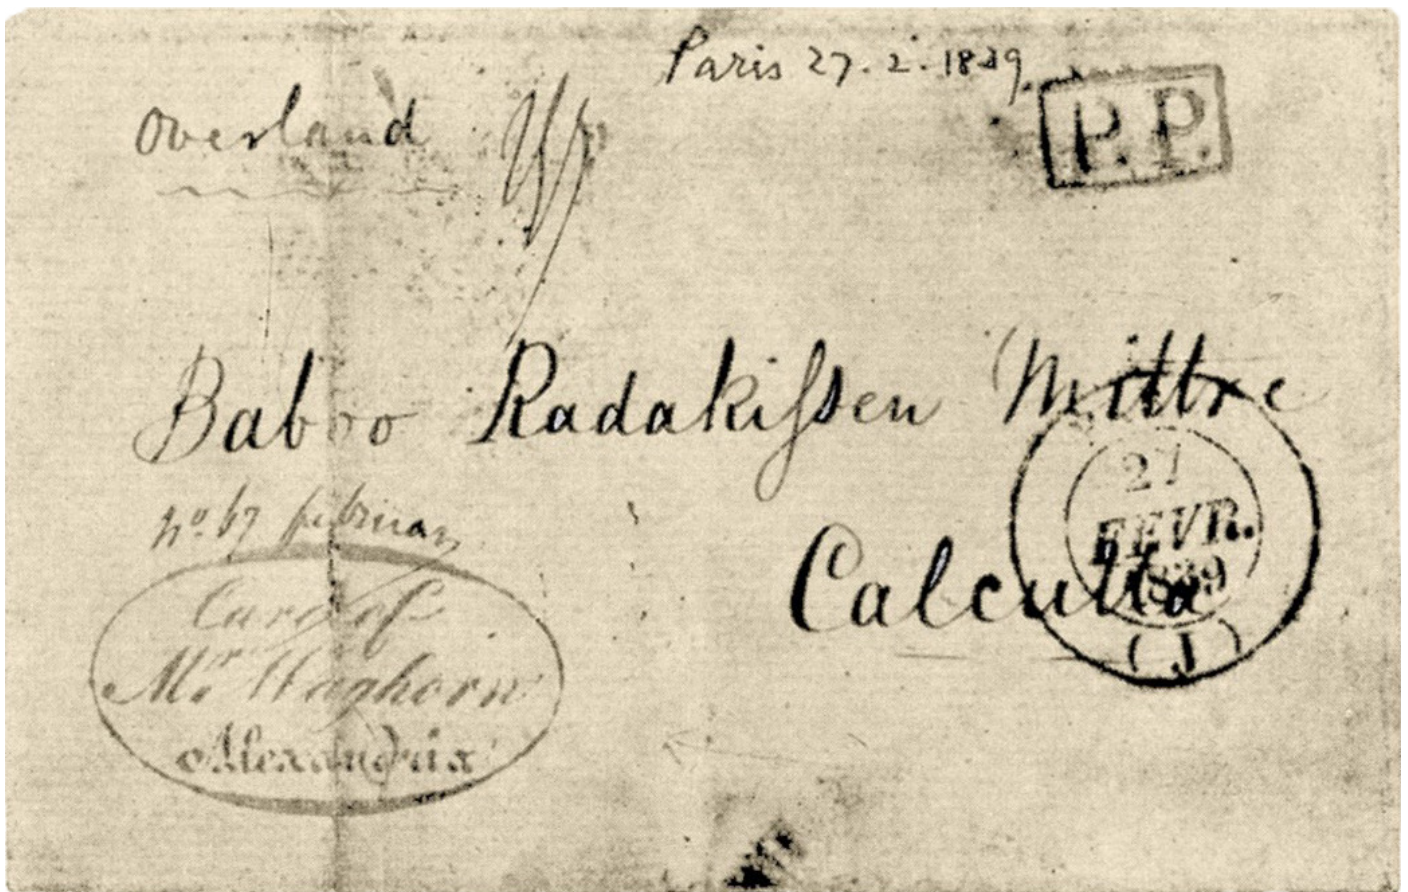 Paris 27.2.1839
Overland
P.P.
Baboo Radakiſsen Mittre
Calcutta
27
FEVR.
1839
(J)
no. 67 februar
Care of
Mr Waghorn
Alexandria